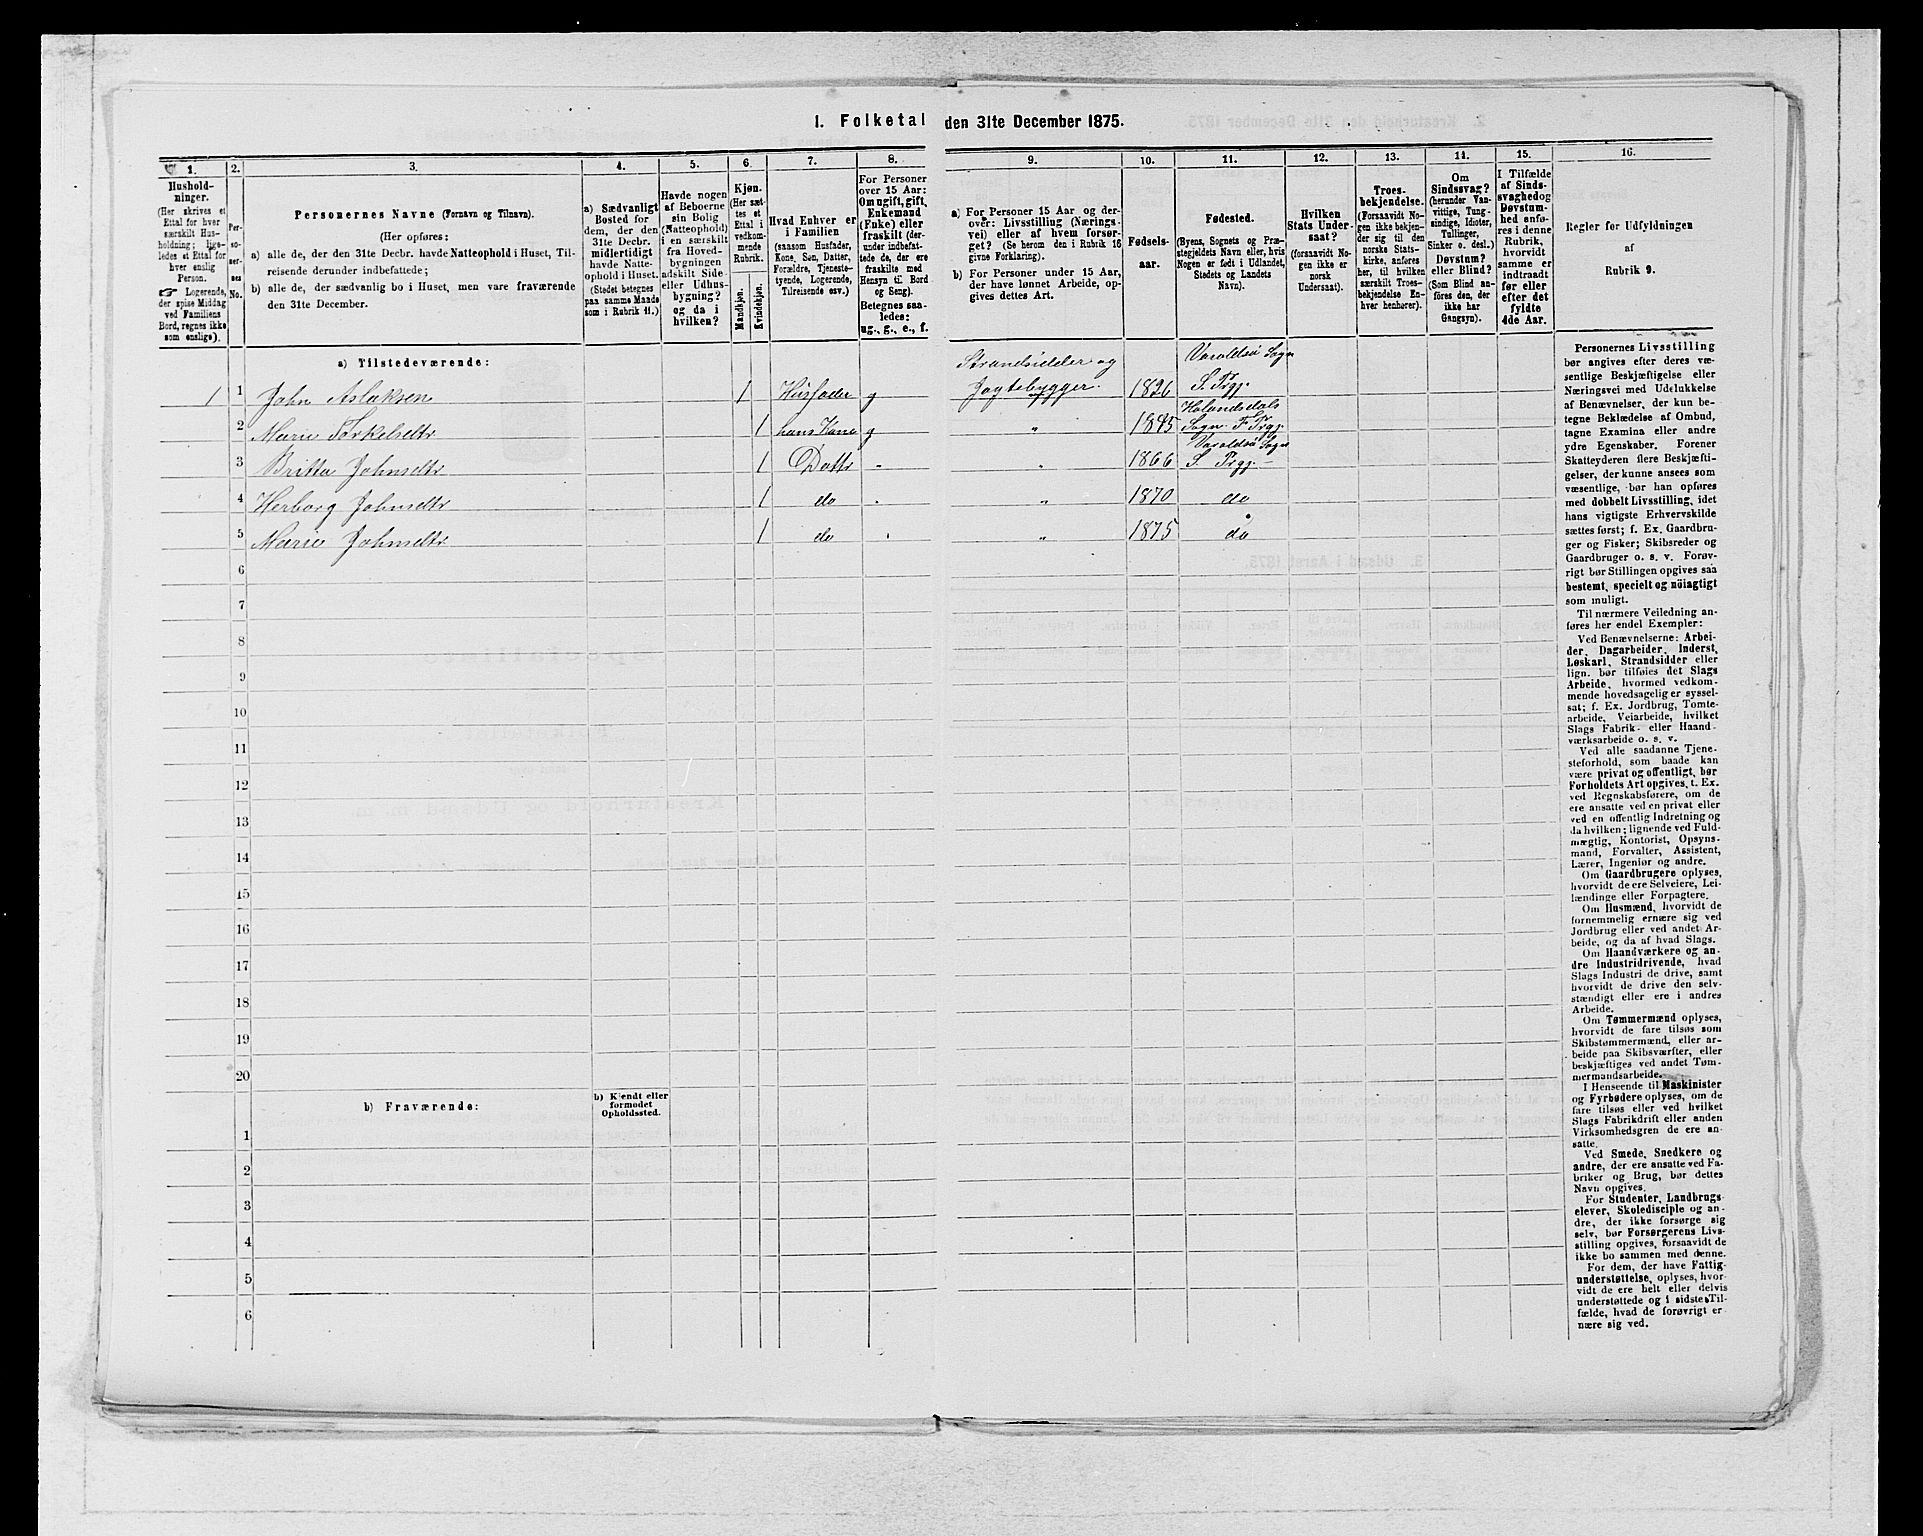 1. Folketal den 31te December 1875.
1.
Hushold-
ninger.
(Her skrives et
Ettal for hver
særskilt Hus-
holdning; lige-
ledes et Ettal for
hver enslig
Person.
☞ Logerende,
der spise Middag
ved Familiens
Bord, regnes ikke
som enslige).
2.
Per-
so-
ner-
nes
No.
3.
Personernes Navne (Fornavn og Tilnavn).
(Her opføres:
a) alle de, der den 31te Decbr. havde Natteophold i Huset, Til-
reisende derunder indbefattede;
b) alle de, der sædvanlig bo i Huset, men vare fraværende
den 31te December.
4.
a) Sædvanligt
Bosted for
dem, der den
31te Decbr.
midlertidigt
havde Natte-
ophold i Huset.
(Stedet betegnes
paa samme Maade
som i Rubrik 11.)
5.
Havde nogen
af Beboerne
sin Bolig
(Natteophold)
i en særskilt
fra Hoved-
bygningen
adskilt Side-
eller Udhus-
bygning?
og da i
hvilken?
6.
Kjøn.
(Her sæt-
tes et
Ettal i
vedkom-
mende
Rubrik.
Mandkjøn.
Kvindekjøn.
7.
Hvad Enhver er
i Familien
(saasom Husfader,
Kone, Søn, Datter,
Forældre, Tjeneste-
tyende, Logerende,
Tilreisende osv.)
8.
For Personer
over 15 Aar:
Om ugift, gift,
Enkemand
(Enke) eller
fraskilt (der-
under indbefat-
tede de, der ere
fraskilte med
Hensyn til Bord
og Seng).
Betegnes saa-
ledes:
ug., g., e., f.
9.
a) For Personer 15 Aar og der-
over: Livsstilling (Nærings-
vei) eller af hvem forsør-
get? (Se herom den i Rubrik 16
givne Forklaring).
b) For Personer under 15 Aar,
der have lønnet Arbeide, op-
gives dettes Art.
10.
Fødsels-
aar.
11.
Fødested.
(Byens, Sognets og Præ-
stegjeldets Navn eller, hvis
Nogen er født i Udlandet,
Stedets og Landets
Navn).
12.
Hvilken
Stats Under-
saat?
(forsaavidt No-
gen ikke er
norsk
Undersaat).
13.
Troes-
bekjendelse.
(Forsaavidt No-
gen ikke bekjen-
der sig til den
norske Stats-
kirke, anføres
her, til hvilken
særskilt Troes-
bekjendelse En-
hver henhører).
14.
Om
Sindssvag?
(herunder Van-
vittige, Tung-
sindige, Idioter,
Tullinger,
Sinker o. desl.)
Døvstum?
eller Blind?
(Som Blind an-
føres den, der
ikke har
Gangsyn).
15.
I Tilfælde
af Sinds-
svaghed og
Døvstum-
hed anfø-
res i denne
Rubrik,
hvorvidt
samme er
indtraadt
før eller
efter det
fyldte
4de Aar.
16.
Regler for Udfyldningen
af
Rubrik 9.
a) Tilstedeværende:
1 1 John Aslaksen 1 Husfader g Strandsidder og Jagtebygger. 1826 Varaldsø Sogn S. Prgj.
2 Marie Torkelsdtr 1 hans Kone g " 1845 Holandsdals Sogn F. Prgj.
3 Britta Johnsdtr 1 Dattr - " 1866 Varaldsø Sogn S. Prgj.
4 Herborg Johnsdtr 1 do . " 1870 do
5 Marie Johnsdtr 1 do . " 1875 do
6
7
8
9
10
11
12
13
14
15
16
17
18
19
20
b) Fraværende:
b) Kjendt eller
formodet
Opholdssted.
1
2
3
4
5
6
Personernes Livsstilling
bør angives efter deres væ-
sentlige Beskjæftigelse eller
Næringsvei med Udelukkelse
af Benævnelser, der kun be-
tegne Beklædelse af Ombud,
tagne Examina eller andre
ydre Egenskaber. Forener
Skatteyderen flere Beskjæfti-
gelser, der kunne ansees som
væsentlige, bør han opføres
med dobbelt Livsstilling, idet
hans vigtigste Erhvervskilde
sættes først; f. Ex. Gaardbru-
ger og Fisker; Skibsreder og
Gaardbruger o. s. v. Forøv-
rigt bør Stillingen opgives saa
bestemt, specielt og nøiagtigt
som muligt.
Til nærmere Veiledning an-
føres her endel Exempler:
Ved Benævnelserne: Arbei-
der, Dagarbeider, Inderst,
Løskarl, Strandsidder eller
lign. bør tilføies det Slags
Arbeide, hvormed vedkom-
mende hovedsagelig er syssel-
sat; f. Ex. Jordbrug, Tomte-
arbeide, Veiarbeide, hvilket
Slags Fabrik- eller Haand-
værksarbeide o. s. v.
Ved alle saadanne Tjene-
steforhold, som baade kan
være privat og offentligt, bør
Forholdets Art opgives, t. Ex.
ved Regnskabsførere, om de
ere ansatte ved en privat eller
ved en offentlig Indretning og
da hvilken; lignende ved Fuld-
mægtig, Kontorist, Opsyns-
mand, Forvalter, Assistent,
Lærer, Ingeniør og andre.
Om Gaardbrugere oplyses,
hvorvidt de ere Selveiere, Lei-
lændinge eller Forpagtere.
Om Husmænd, hvorvidt de
fornemmelig ernære sig ved
Jordbrug eller ved andet Ar-
beide, og da af hvad Slags.
Om Haandværkere og an-
dre Industridrivende, hvad
Slags Industri de drive, samt
hvorvidt de drive den selv-
stændigt eller ere i andres
Arbeide.
Om Tømmermænd oplyses,
hvorvidt de fare tilsøs som
Skibstømmermænd, eller ar-
beide paa Skibsværfter, eller
beskjæftiges ved andet Tøm-
mermandsarbeide.
I Henseende til Maskinister
og Fyrbødere oplyses, om de
fare tilsøs eller ved hvilket
Slags Fabrikdrift eller anden
Virksomhedsgren de ere an-
satte.
Ved Smede, Snedkere og
andre, der ere ansatte ved Fa-
briker og Brug, bør dettes
Navn opgives.
For Studenter, Landbrugs-
elever, Skoledisciple og an-
dre, der ikke forsørge sig
selv, bør Forsørgerens Livs-
stilling opgives, forsaavidt de
ikke bo sammen med denne.
For dem, der have Fattig-
understøttelse, oplyses, hvor-
vidt de ere helt eller delvis
understøttede og i sidste Til-
fælde, hvad de forøvrigt er-
nære sig ved.